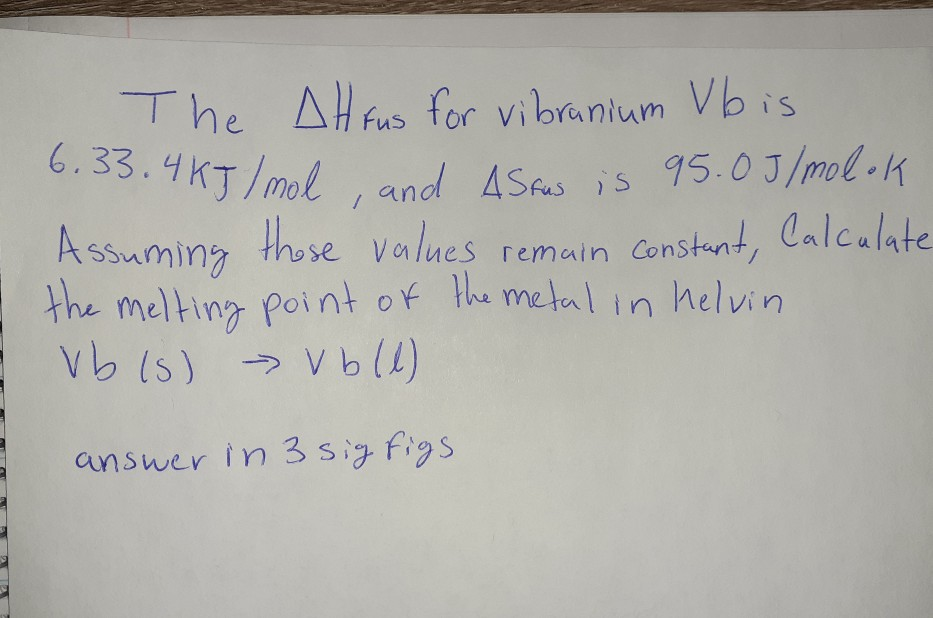 The ΔH fus for vibranium Vb is
6.33.4KJ/mol, and ΔSfus is 95.0 J/mol•K
Assuming those values remain constant, Calculate
the melting point of the metal in kelvin
Vb (s) → Vb(l)
answer in 3 sig figs